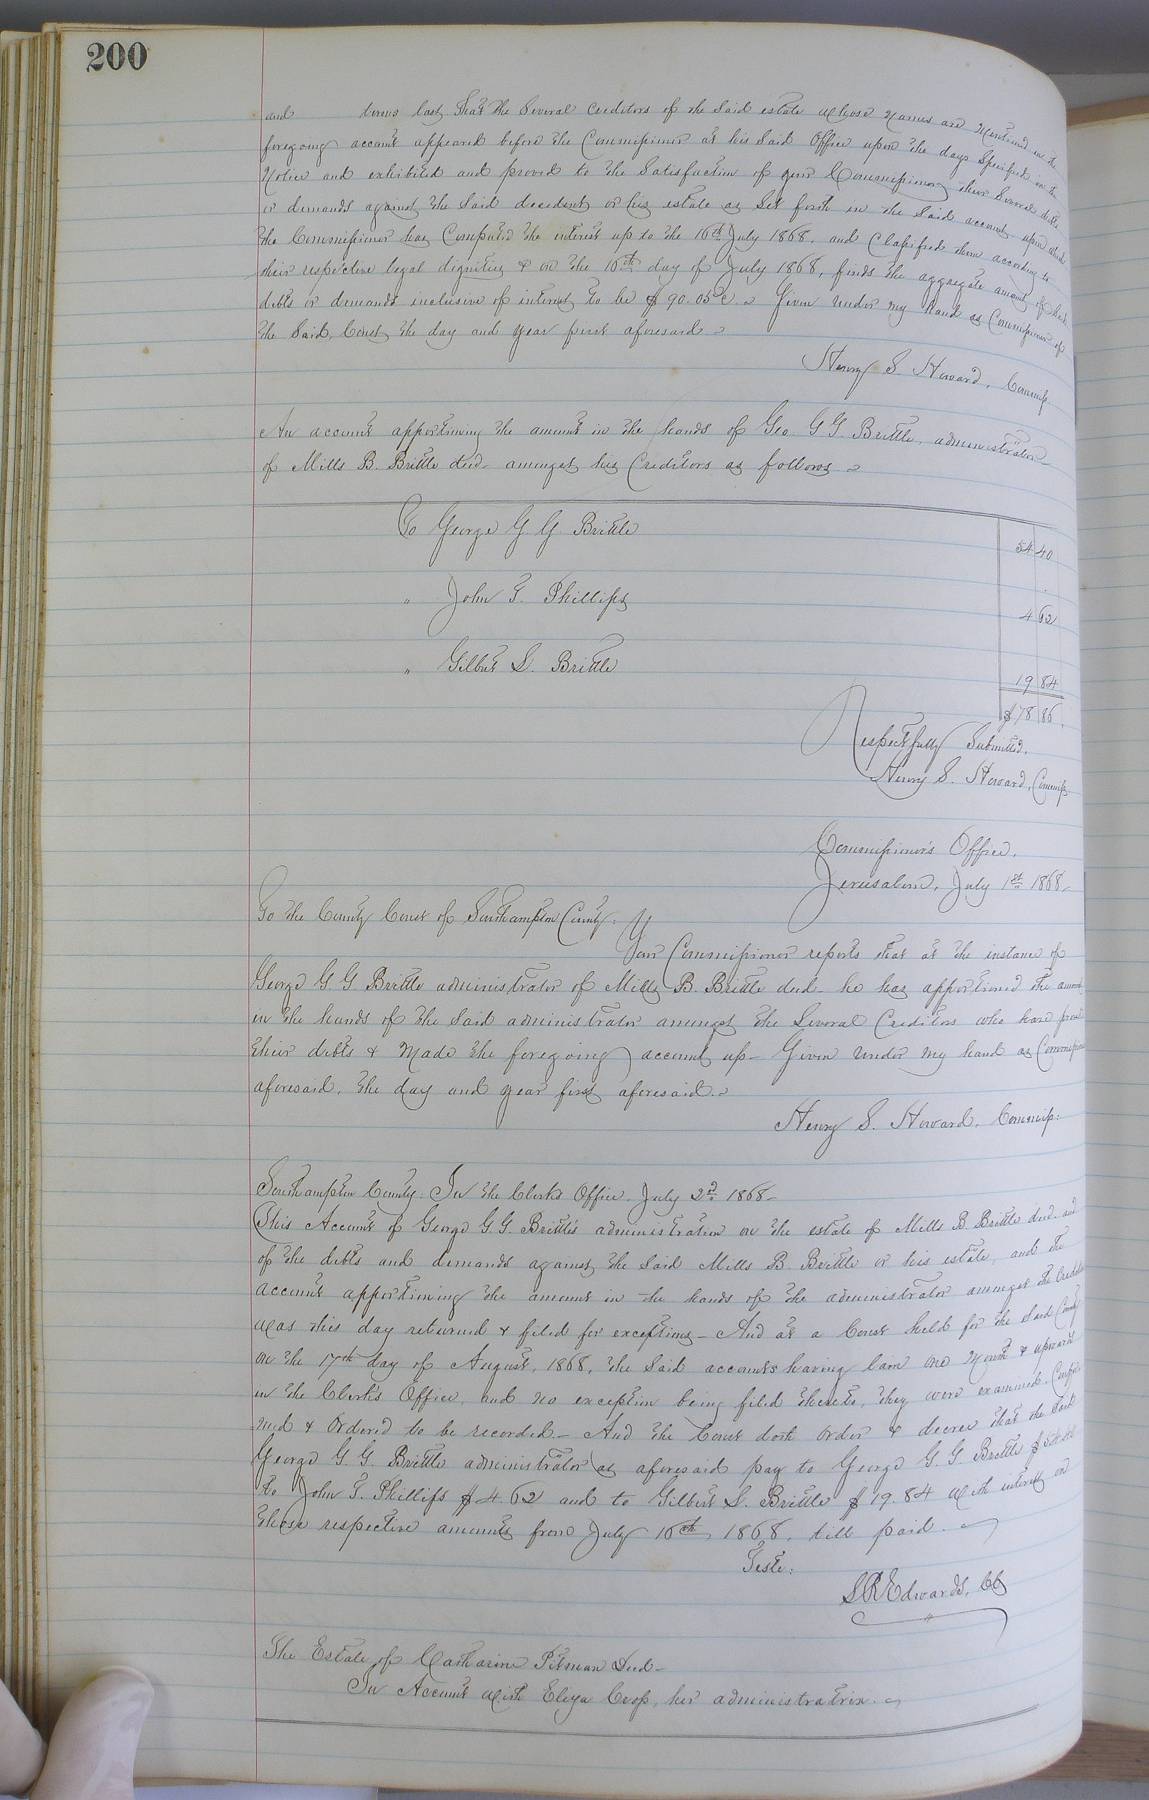 200
and terms last That the Several Creditors of the Said estate whose Names are Mentioned in the
foregoing account appeared before the Commissioner at his Said Office upon the days Specified in the
Notice and exhibited and proved to the Satisfaction of your Commissioner their Several debts
or demands against the Said decedent or his estate as Set forth in the Said account upon which
the Commissioner has Computed the interest up to the 16th July 1868. and Classified them according to
their respective legal dignities & on the 16th day of July 1868, finds the aggregate amount of Such
debts or demands inclusive of interest to be $90.05c. Given under my hand as Commissioner of
the Said Court the day and year first aforesaid
Henry S Howard, Commiss
An account apportioning the amount in the hands of Geo G G Brittle, administrator
of Mills B. Brittle decd. amongst his Creditors as follows
To George G G Brittle 54 40
" John T. Phillips 4 62
" Gilbert S. Brittle 19 84
$78 86.
Respectfully Submitted,
Henry S. Howard, Commiss
Commissioner's Office,
Jerusalem, July 1st 1868
To the County Court of Southampton County.
Your Commissioner reports that at the instance of
George G G Brittle administrator of Mills B. Brittle decd. he has apportioned the amount
in the hands of the Said administrator amongst the Several Creditors who have proved
their debts & Made the foregoing account up - Given under my hand as Commissioner
aforesaid, the day and year first aforesaid.
Henry S. Howard, Commiss:
Southampton County. In the Clerks Office, July 2d 1868
This Account of George G. G. Brittle's administration on the estate of Mills B. Brittle decd. and
of the debts and demands against the Said Mills B. Brittle or his estate, and the
account apportioning the amount in the hands of the administrator amongst the Creditors
was this day returned & filed for exceptions - And at a Court held for the Said County
on the 17th day of August, 1868, the Said accounts having lain one Month & upwards
in the Clerk's Office, and no exception being filed thereto, they were examined, Confir
med & Ordered to be recorded - And the Court doth order & decree that the Said
George G. G. Brittle administrator as aforesaid pay to George G. G Brittle $54.40
to John T. Phillips $4.62 and to Gilbert S. Brittle $19.84 with interest on
these respective amounts from July 16th, 1868, till paid.
Teste:
S R Edwards, CC
The Estate of Catharine Pitman Decd
In Account with Eliza Crop, her administratrix.